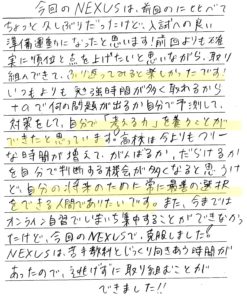 今回のNEXUSは、前回のにくらべて
ちょっと久しぶりだったけど、入試への良い
準備運動になったと思います！前回よりも確
実に順位と点を上げたいと思いながら、取り
組んできて、ふり返ってみると楽しかったです！
いつもよりも勉強時間が多く取れるから
その中で何の問題が出るか自分で予測して、
対策をして、自分で「考える力」を養うことが
できたと思っています。高校は今よりもフリー
な時間が増えて、がんばるか、だらけるか
を自分で判断する機会が多くなると思うけ
ど、自分の将来のために常に最善の選択
をできる人間でありたいです。また、今までは
オンライン自習でしまいち集中することができなかっ
たけど、今回のNEXUSで、克服しました！
NEXUSは、苦手教科とじっくり向きあう時間が
あったので、逃げずに取り組むことが
できました!!